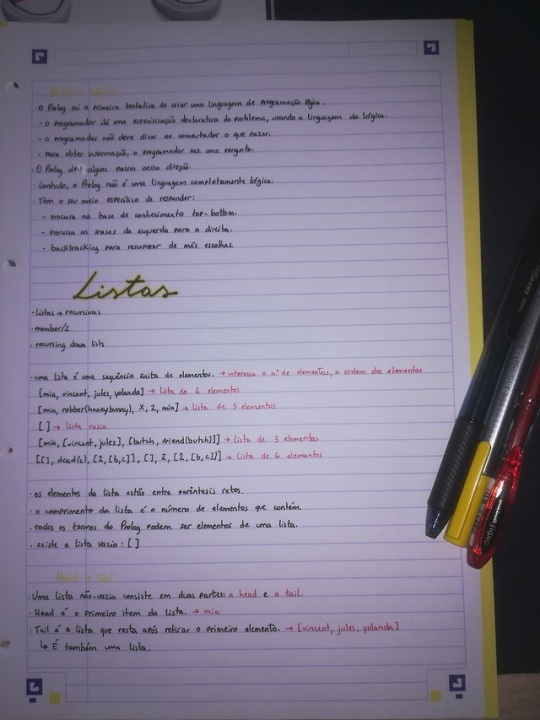 Prolog e Lógica
· O Prolog foi a primeira tentativa de criar uma linguagem de programação lógica.
- o programador dá uma especificação declarativa do problema, usando a linguagem da lógica.
- o programador não deve dizer ao computador o que fazer.
- para obter informação, o programador faz uma pergunta.
· O Prolog deu alguns passos nessa direção.
· Contudo, o Prolog não é uma linguagem completamente lógica.
· Tem o seu meio específico de responder:
- procura na base de conhecimento top-bottom.
- processa as frases da esquerda para a direita.
- backtracking para recuperar de más escolhas.
Listas
· Listas → recursivas
· member/2
· recursing down lists
· uma lista é uma sequência finita de elementos. → interessa o nº de elementos, a ordem dos elementos
[mia, vincent, jules, yolanda] → lista de 4 elementos
[mia, robber(honeybunny), X, 2, mia] → lista de 5 elementos
[ ] → lista vazia
[mia, [vincent, jules], [butch, friend(butch)]] → lista de 3 elementos
[[], dead(z), [2, [b,c]], [], Z, [2, [b,c]]] → lista de 6 elementos
· os elementos da lista estão entre parêntesis retos.
· o comprimento da lista é o número de elementos que contém.
· todos os termos do Prolog podem ser elementos de uma lista.
· existe a lista vazia: [ ]
Head e Tail
· Uma lista não-vazia consiste em duas partes: a head e a tail.
· Head é o primeiro item da lista. → mia
· Tail é a lista que resta após retirar o primeiro elemento. → [vincent, jules, yolanda]
↳ É também uma lista.